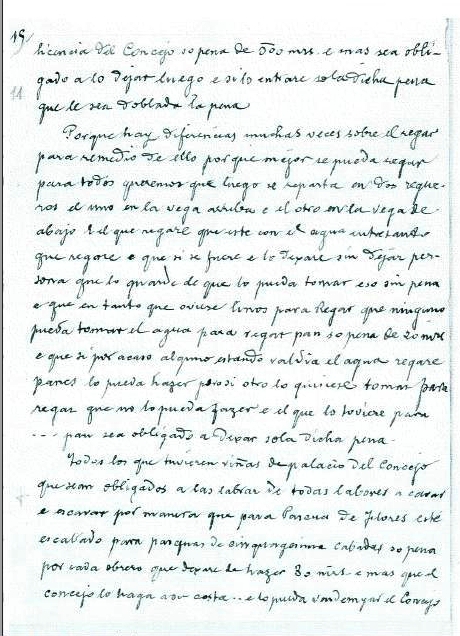 15
licencia del Concejo so pena de 500 mrs. e mas sea obli-
gado a lo dejar luego e si lo entrare sola dicha pena
11
que le sea doblada la pena
Porque hay diferencias muchas veces sobre el regar
para remedio de ello porque mejor se pueda regar
para todos queremos que luego se reparta en dos regue-
ros el uno en la vega arriba e el otro en la vega de
abajo e el que regare que este con el agua entretanto
que regare e que si se fuere e lo dexare sin dejar per-
sona que lo guarde de que lo pueda tomar eso sin pena
e que en tanto que oviere linos para regar que ninguno
pueda tomar el agua para regar pan so pena de 20 mrs
e que si por acaso alguno estando valdia el agua regare
panes lo pueda hazer pero si otro lo quisiese tomar para
regar que no lo pueda fazer e el que lo toviere para
.... pan sea obligado a dexar sola dicha pena.
Todos los que tuvieren viñas de palacio del Concejo
que sean obligados a las labrar de todas labores a cavar
e escavar por manera que para Pascua de Flores esté
escabado para pascuas de cinquagesima cabadas so pena
por cada obrero que dexare de hazer 30 mrs. e mas que el
concejo lo haga a su costa .. e lo pueda vendemyar el Concejo